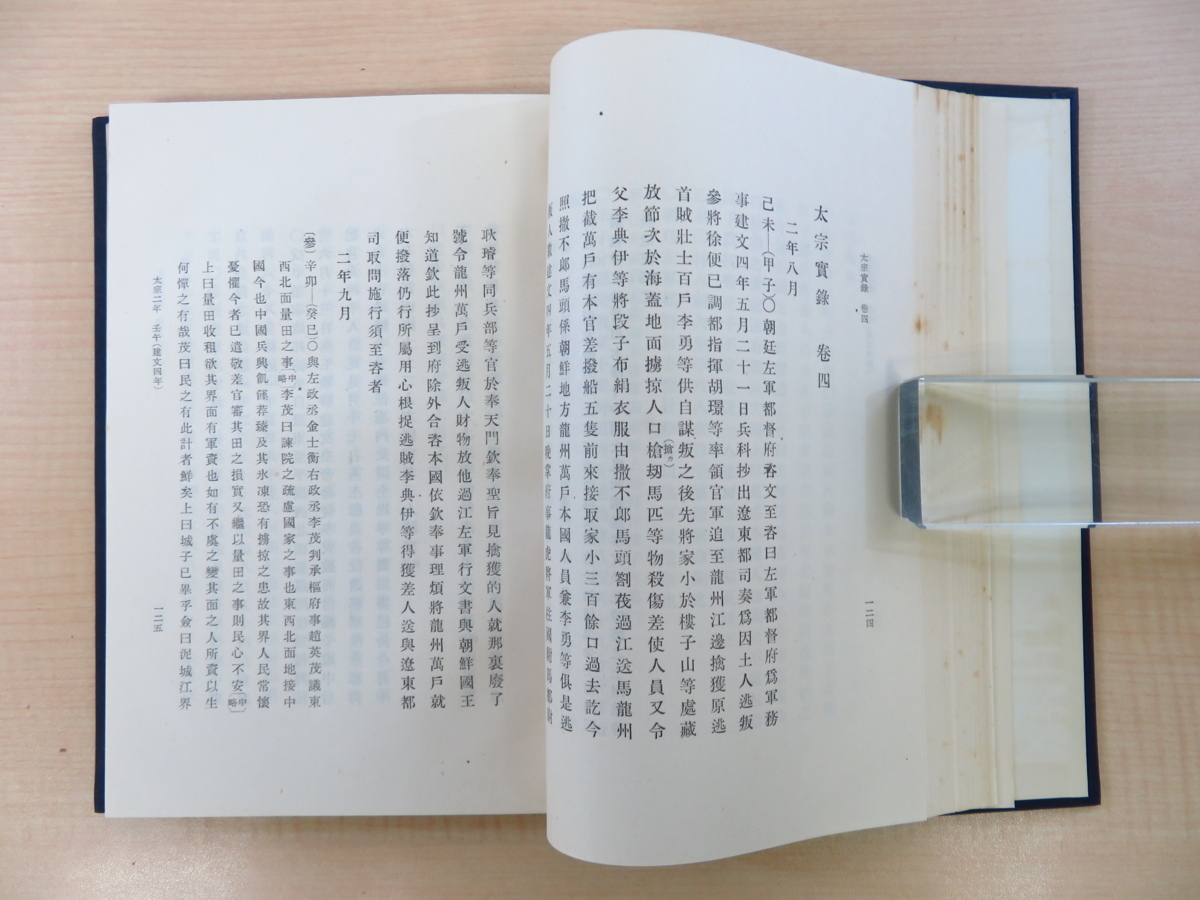 太宗實錄 卷四
一二四
太宗實錄 卷四
二年八月
己未―(甲子)〇朝廷左軍都督府咨文至咨曰左軍都督府爲軍務
事建文四年五月二十一日兵科抄出遼東都司奏爲因土人逃叛
參將徐便已調都指揮胡璟等率領官軍追至龍州江邊擒獲原逃
首賊壯士百戶李勇等供自謀叛之後先將家小於樓子山等處藏
放節次於海蓋地面擄掠人口槍刼馬匹等物殺傷差使人員又令
(搶カ)
父李典伊等將段子布絹衣服由撒不郞馬頭劄茷過江送馬龍州
把截萬戶有本官差撥船五隻前來接取家小三百餘口過去訖今
照撒不郞馬頭係朝鮮地方龍州萬戶本國人員兼李勇等俱是逃
人 建文四年五月二十日晩掌府事龍虎將軍
耿璿等同兵部等官於奉天門欽奉聖旨見擒獲的人就那裏廢了
號令龍州萬戶受逃叛人財物放他過江左軍行文書與朝鮮國王
知道欽此抄呈到府除外合咨本國依欽奉事理煩將龍州萬戶就
便撥落仍行所屬用心根捉逃賊李典伊等得獲差人送與遼東都
司取問施行須至咨者
二年九月
(參)辛卯―(癸巳)〇與左政丞金士衡右政丞李茂判承樞府事趙英茂議東
西北面量田之事(中略)李茂曰諫院之疏慮國家之事也東西北面地接中
國今也中國兵興飢饉荐臻及其氷凍恐有擄掠之患故其界人民常懷
憂懼今者已遣敬差官審其田之損實又繼以量田之事則民心不安(中略)
上曰量田收租欲其界面有軍資也如有不虞之變其面之人所資以生
何憚之有哉茂曰民之有此計者鮮矣上曰城子已畢乎僉曰泥城江界
太宗二年 壬午(建文四年)
一二五